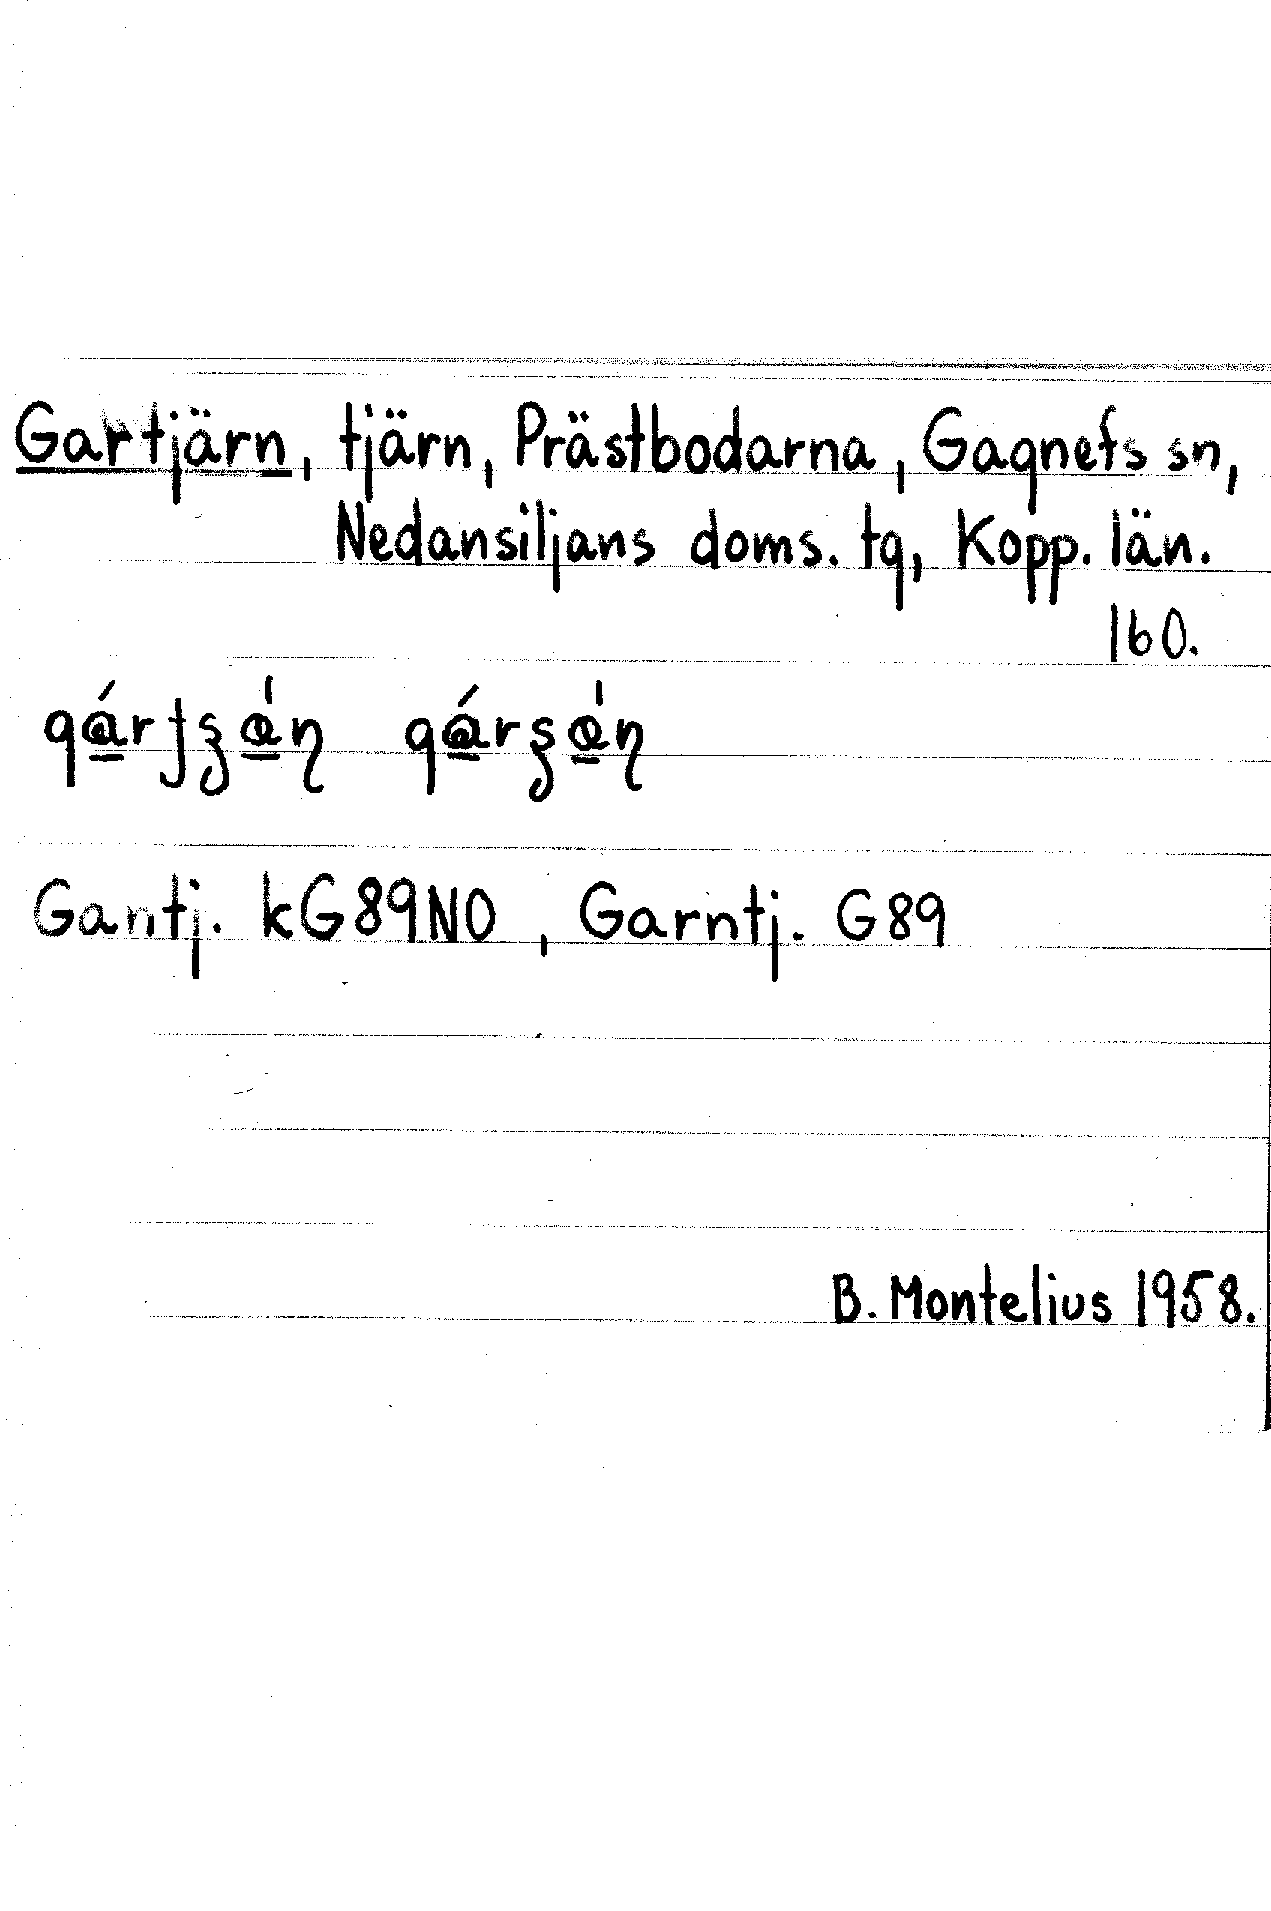 Gartjärn, tjärn, Prästbodarna, Gagnefs sn,
Nedansiljans doms. tg, Kopp. län.
160.
Gantj. kG89NO, Garntj. G89
B. Montelius 1958.